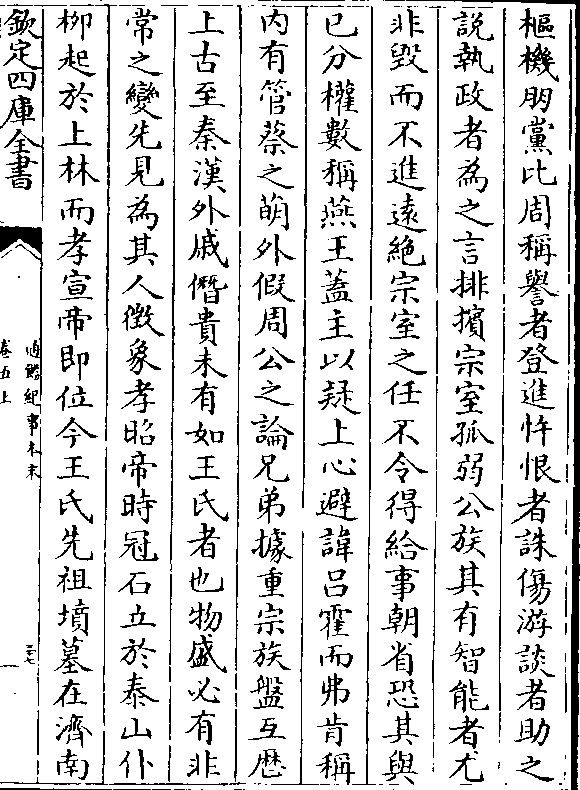 樞機朋黨比周稱譽者登進忤恨者誅傷游談者助之
說執政者為之言排擯宗室孤弱公族其有智能者尤
非毀而不進逺絶宗室之任不令得給事朝省恐其與
已分權數稱燕王蓋主以疑上心避諱吕霍而弗肯稱
内有管蔡之萌外假周公之論兄弟據重宗族盤互歴
上古至秦漢外戚僭貴未有如王氏者也物盛必有非
常之變先見為其人徴象孝昭帝時冠石立於泰山仆
栁起於上林而孝宣帝即位今王氏先祖墳墓在濟南
欽定四庫全書
通鑑紀事本末
卷五上